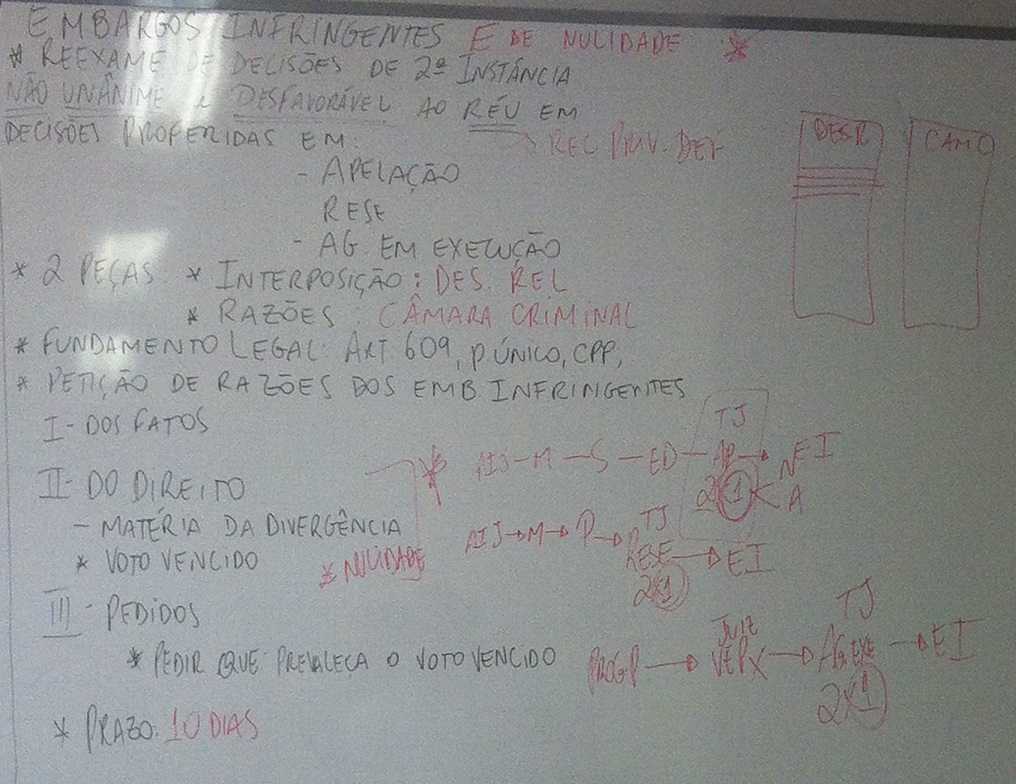 EMBARGOS INFRINGENTES E DE NULIDADE *
* REEXAME DE DECISÕES DE 2ª INSTÂNCIA
NÃO UNÂNIME e DESFAVORÁVEL AO RÉU EM
DECISÕES PROFERIDAS EM:
REC PRIV. DEF
- APELAÇÃO
RESE
- AG. EM EXECUÇÃO
* 2 PEÇAS * INTERPOSIÇÃO: DES. REL
* RAZÕES: CÂMARA CRIMINAL
* FUNDAMENTO LEGAL: ART. 609, P. ÚNICO, CPP,
* PETIÇÃO DE RAZÕES DOS EMB. INFRINGENTES
I - DOS FATOS
II - DO DIREITO
- MATÉRIA DA DIVERGÊNCIA
* VOTO VENCIDO
* NULIDADE
III - PEDIDOS
* PEDIR QUE PREVALEÇA O VOTO VENCIDO
* PRAZO: 10 DIAS
DESR
CAMO
TJ
AIJ - M - S - ED - AP → EI
2x1 N
A
TJ
AIJ → M → P → RESE → EI
2x1
JUIZ TJ
PROGP → VEPX → AG.EXE → EI
2x1